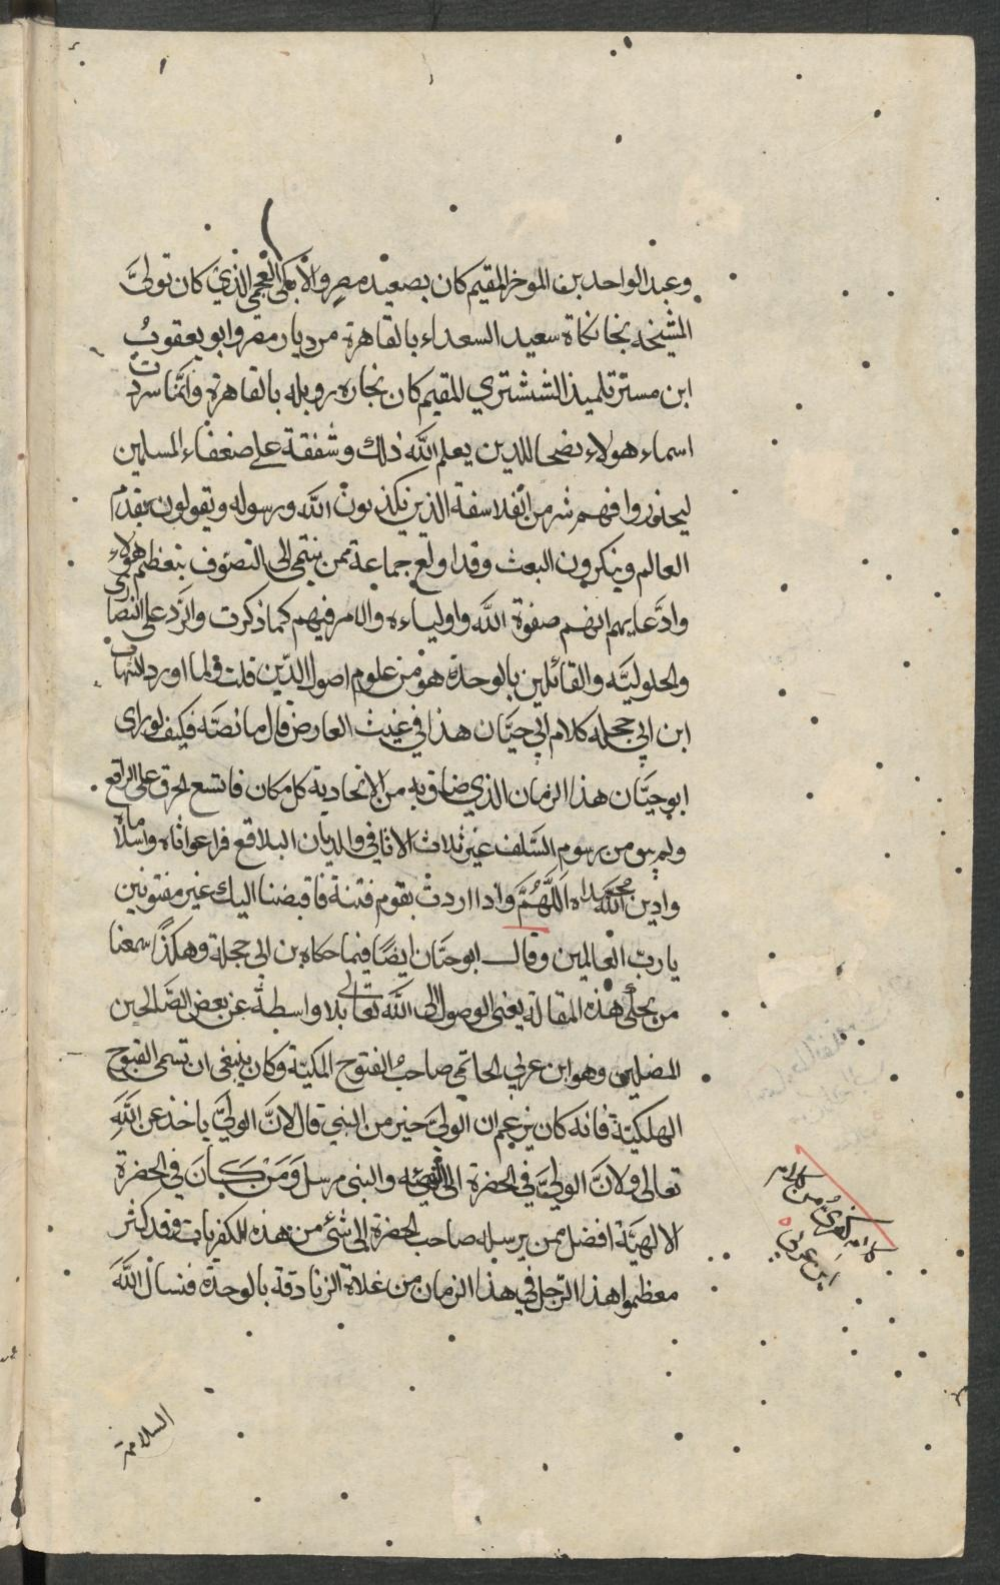 وعبد الواحد بن الموخر المقيم كان بصعيد مصر والايكي العجمي الذي كان تولى
المشيخه بخانكاة سعيد السعداء بالقاهرة من ديار مصر وابو يعقوب
ابن مستر تلميذ الششتري المقيم كان بحاره زويله بالقاهرة وانما سردت
اسماء هولاء نصحا للدين يعلم الله ذلك وشفقة على ضعفاء المسلمين
ليحذروا فهم شر من الفلاسفة الذين يكذبون الله ورسوله ويقولون بقدم
العالم وينكرون البعث وقد اولع جماعة ممن ينتمي الى التصوف بتعظيم هولاء
وادعايهم انهم صفوة الله واولياءه والامر فيهم كما ذكرت والرد على النصارى
والحلوليه والقائلين بالوحدة هو من علوم اصول الدين قلت ولما اورد الشهاب
ابن ابي حجله كلام ابي حيان هذا في غيث العارض قال ما نصه فكيف لو راى
ابو حيان هذا الزمان الذي ضاق به من الاتحادية كل مكان فاتسع الخرق على الراقع
ولم يبق من رسوم السلف غير ثلاث الاثافي والديار البلاقع فراعوا ثاه واسلاماه
وادين محمداه اللهم واذا اردت بقوم فتنة فاقبضنا اليك غير مفتونين
يا رب العالمين وقال ابو حيان ايضا فيما حكاه بن ابي حجلة وهكذا سمعنا
من يحكي هذه المقالة يعني الوصول الى الله تعالى بلا واسطة عن بعض الصالحين
المضلين وهو ابن عربي الحاتمي صاحب الفتوح المكية وكان ينبغي ان تسمى القبوح
الهلكية فانه كان يزعم ان الولي خير من النبي قال لان الولي ياخذ عن الله
تعالى ولان الولي في الحضرة الالهية والنبي مرسل ومن كان في الحضرة
الالهية افضل ممن يرسله صاحب الحضرة الى شئ من هذه الكفريات وقد كثر
معظموا هذا الرجل في هذا الزمان من غلاة الزنادقة بالوحدة فنسال الله
من كلام
ابن عربي
السلامة